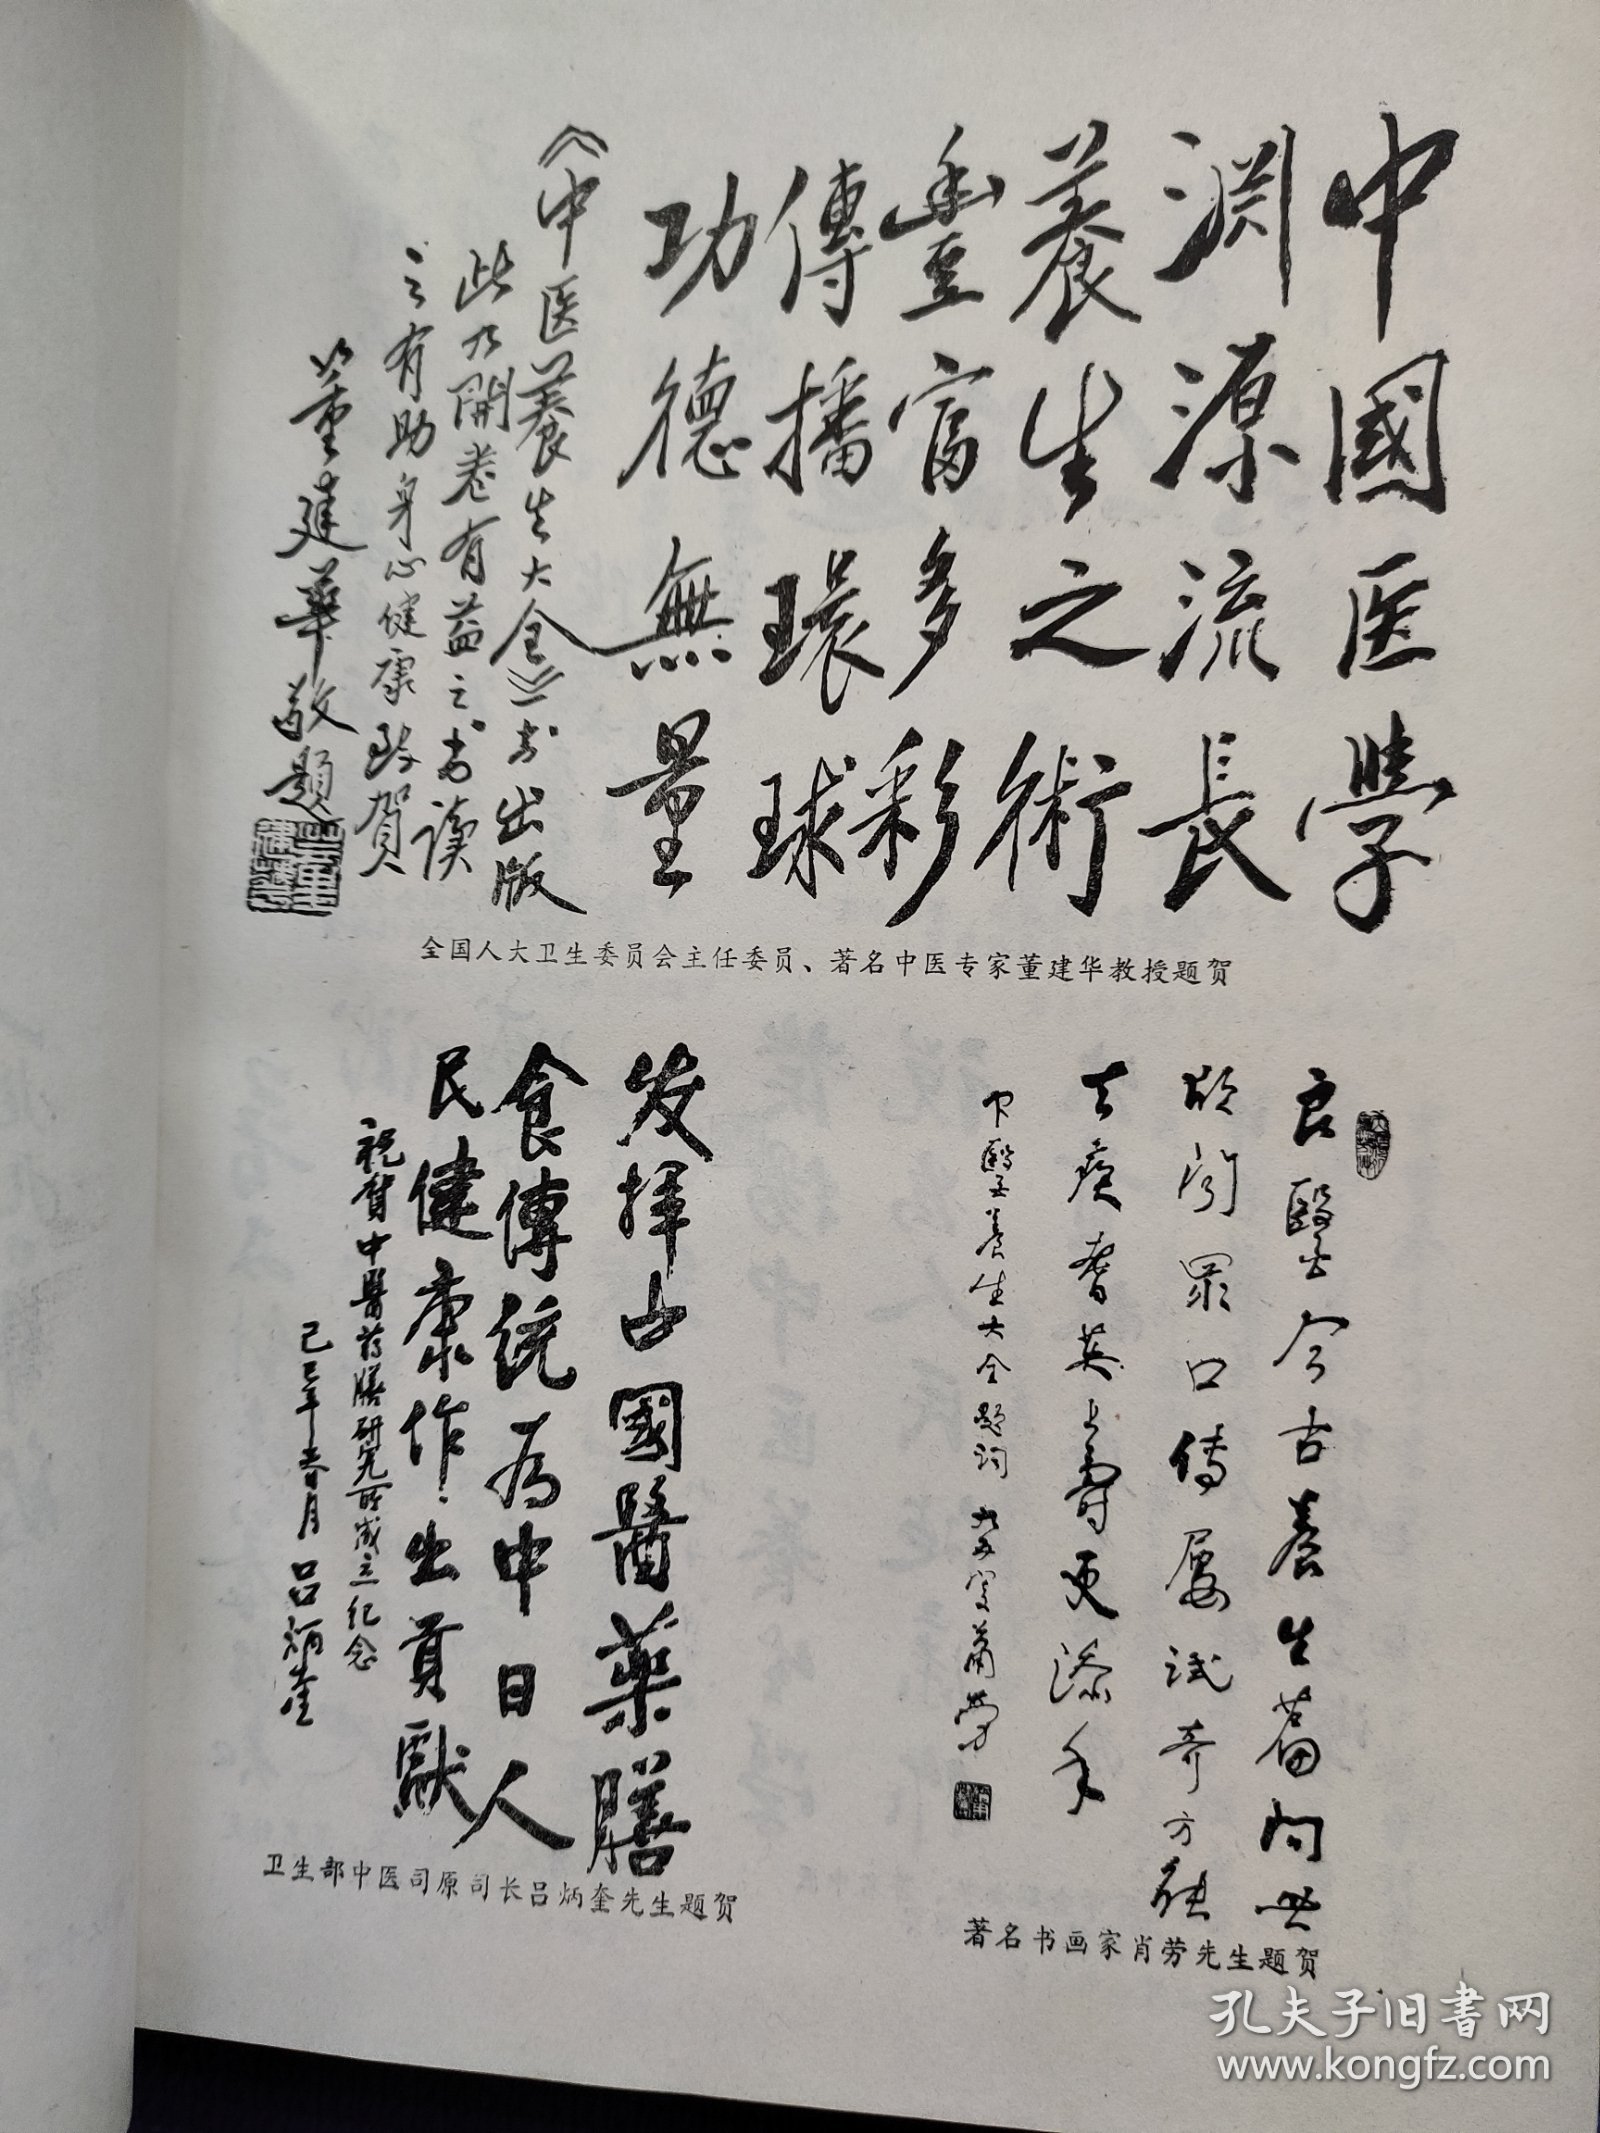 中國医學
渊源流長
養生之術
豊富多彩
傳播環球
功德無量
《中医養生大全》书出版
此乃開卷有益之书读
之有助身心健康致賀
董建華敬題
全国人大卫生委员会主任委员、著名中医专家董建华教授题贺
良醫今古養生篇問世
欣闻眾口傳屢试奇方
去疾耆英上壽更添年
中醫養生大全题词
萧劳
著名书画家肖劳先生题贺
发揮古國醫藥膳
食傳统为中日人
民健康作出貢獻
祝賀中醫药膳研究所成立纪念
己巳年春月 吕炳奎
卫生部中医司原司长吕炳奎先生题贺
孔夫子旧书网
www.kongfz.com